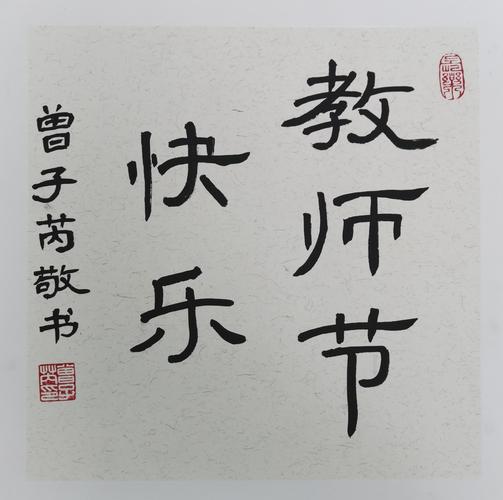 教师节
快乐
曾子芮敬书